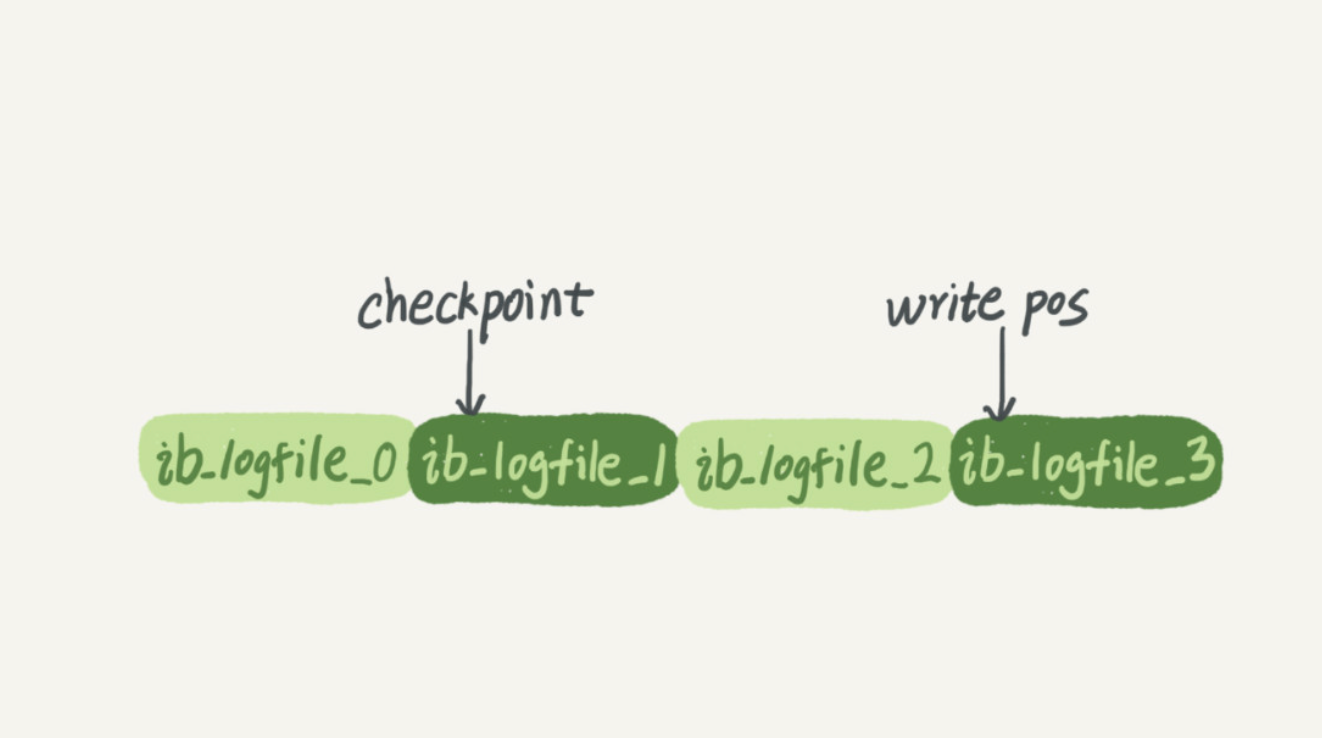 checkpoint write pos
ib_logfile_0 ib-logfile_1 ib_logfile_2 ib-logfile_3